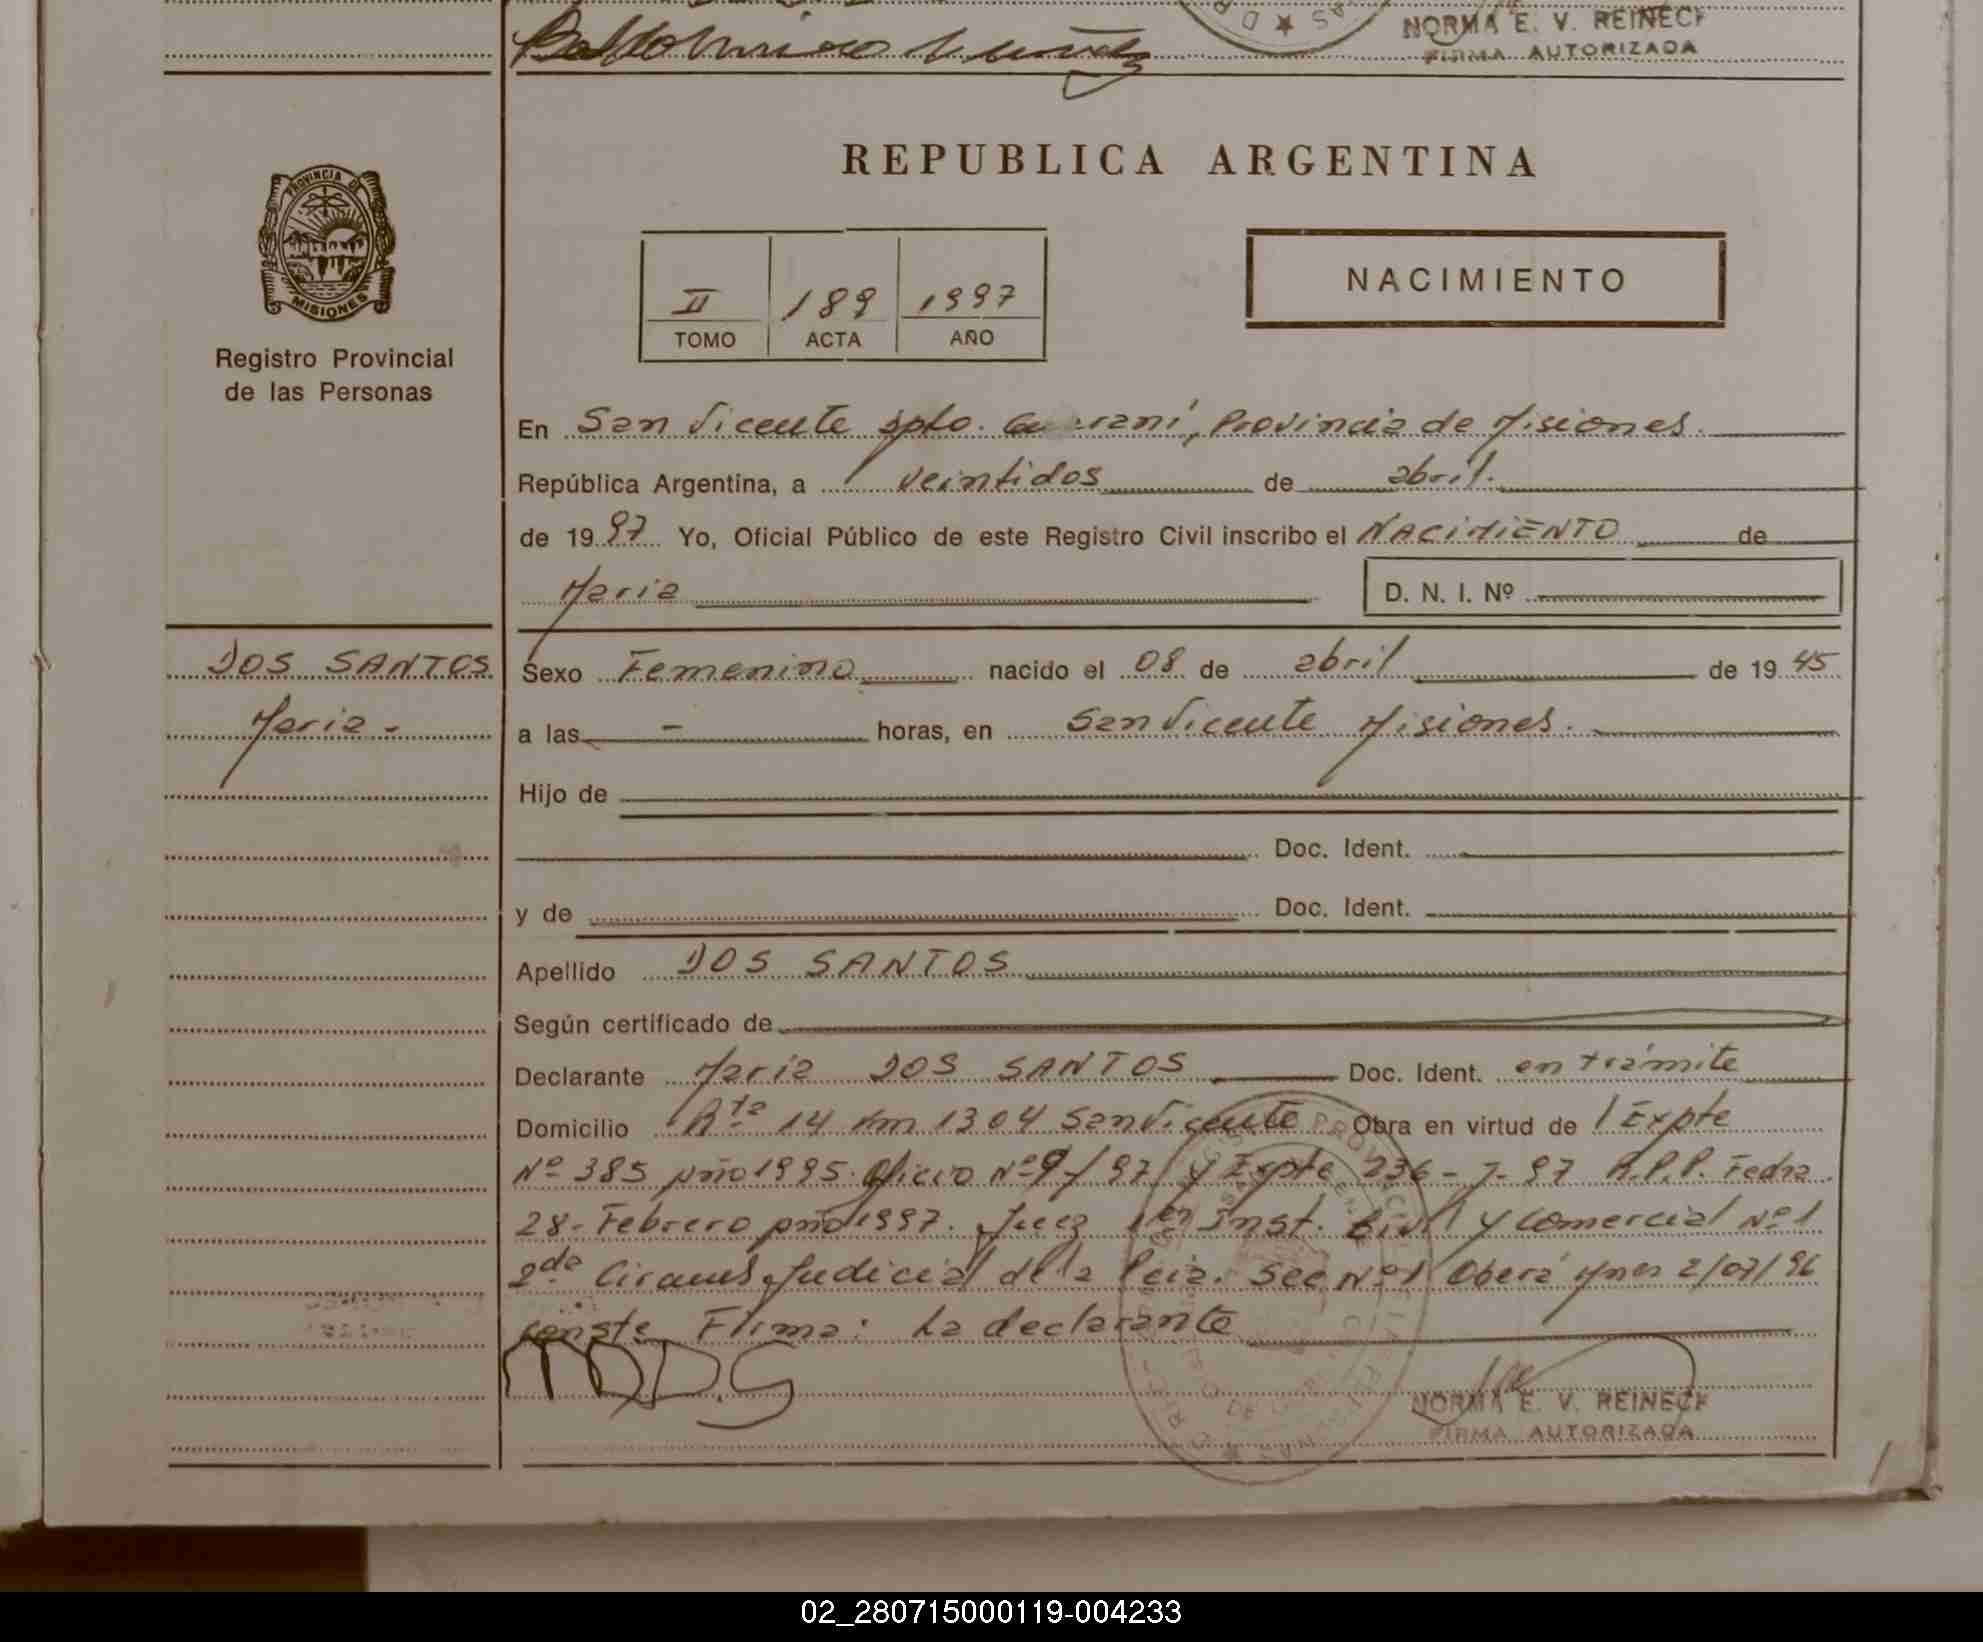 NORMA E. V. REINECK
FIRMA AUTORIZADA
PROVINCIA DE
MISIONES
Registro Provincial
de las Personas
REPUBLICA ARGENTINA
II 189 1997
TOMO ACTA AÑO
NACIMIENTO
En San Vicente dpto. Guaraní, Provincia de Misiones.
República Argentina, a veintidos de abril.
de 1997 Yo, Oficial Público de este Registro Civil inscribo el NACIMIENTO de
Maria D. N. I. Nº
DOS SANTOS
Maria -
Sexo Femenino nacido el 08 de abril de 1945
a las - horas, en San Vicente Misiones.
Hijo de
Doc. Ident.
y de Doc. Ident.
Apellido DOS SANTOS
Según certificado de
Declarante María DOS SANTOS Doc. Ident. en trámite
Domicilio Rta 14 Km 1304 San Vicente Obra en virtud de / Expte
Nº 385 año 1995. Oficio Nº 9/97 y Expte 236-7-97 R.P.P. Fecha
28- Febrero año 1997. Juez 1er Inst. Civil y Comercial Nº 1
2da Circuns. Judicial de la Pcia. Sec Nº 1 Oberá Mnes 2/07/96
conste Firma: La declarante
MDDS
NORMA E. V. REINECK
FIRMA AUTORIZADA
02_280715000119-004233